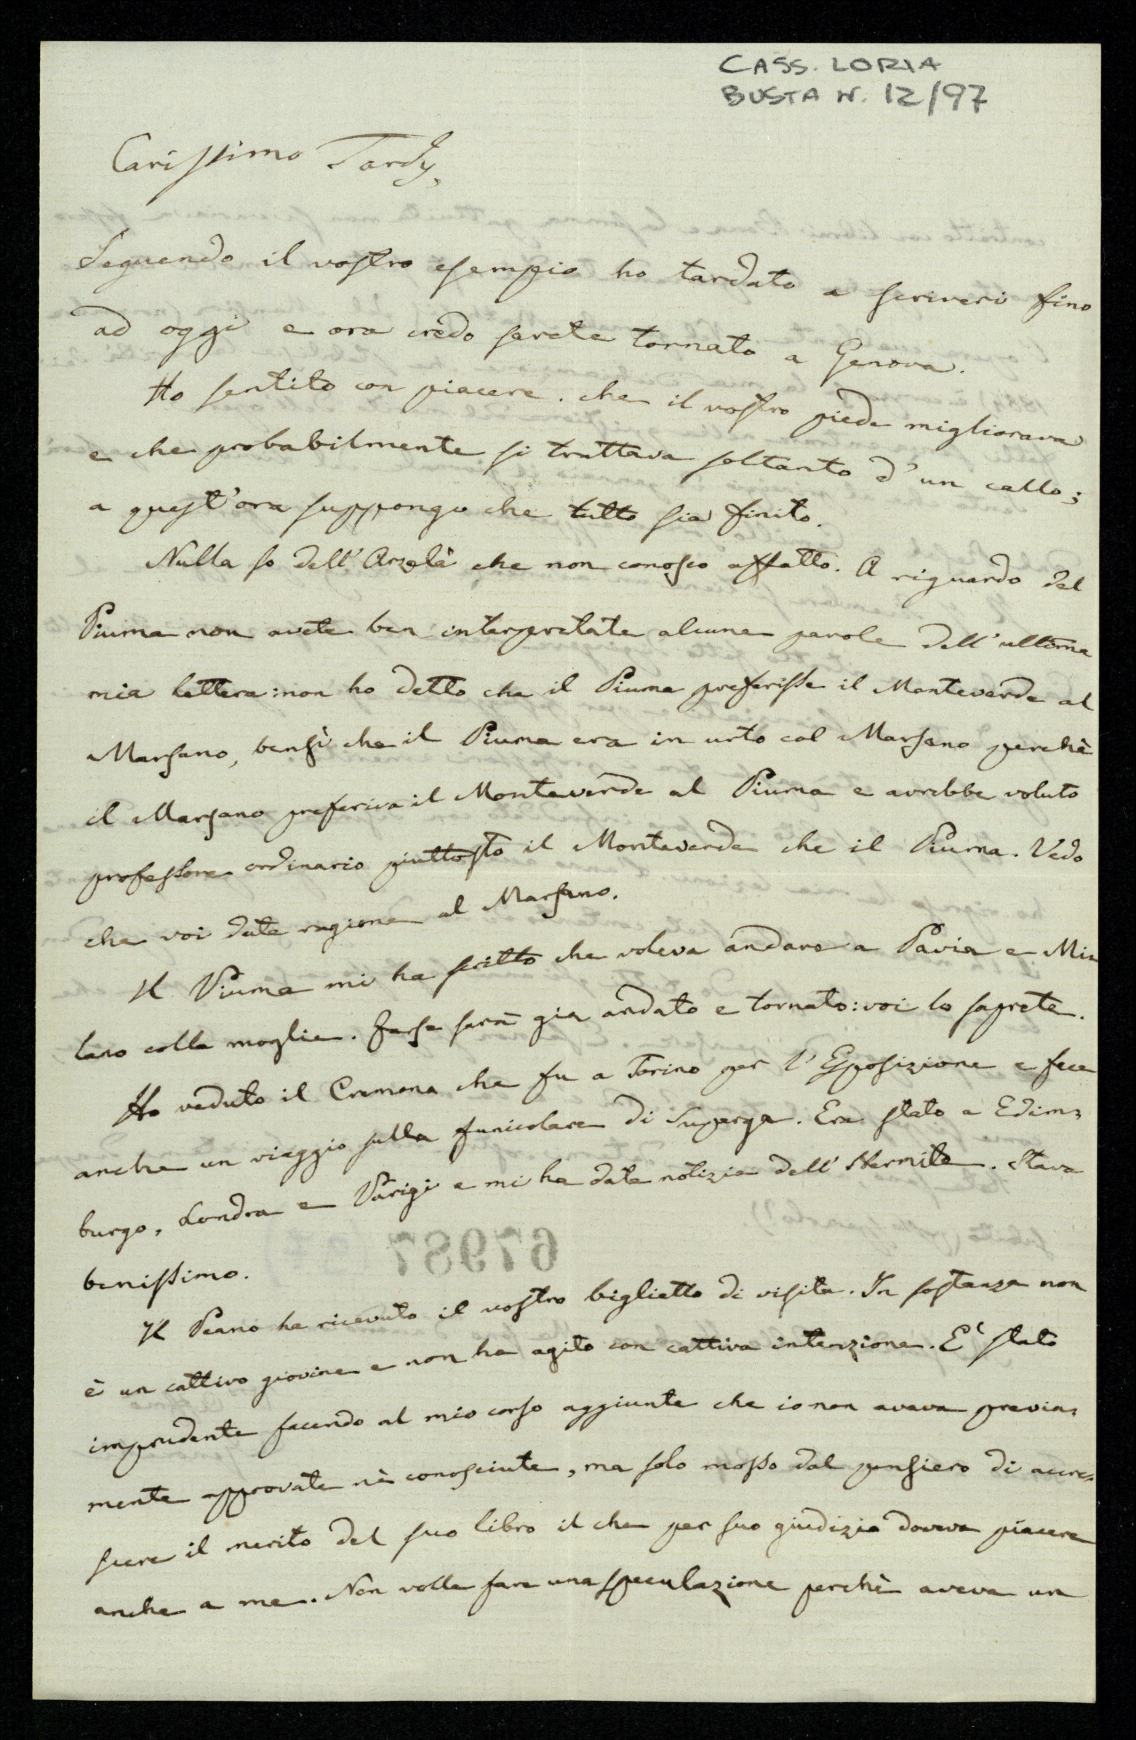 CASS. LORIA
BUSTA N. 12/97
Carissimo Tardy,
Seguendo il vostro esempio ho tardato a scrivervi fino
ad oggi e ora credo sarete tornato a Genova.
Ho sentito con piacere che il vostro piede migliorava
e che probabilmente si trattava soltanto d'un callo;
a quest'ora suppongo che tutto sia finito.
Nulla so dell'Arzelà che non conosco affatto. A riguardo del
Piuma non avete ben interpretate alcune parole dell'ultima
mia lettera: non ho detto che il Piuma preferisse il Monteverde al
Marsano, bensì che il Piuma era in urto col Marsano perchè
il Marsano preferiva il Monteverde al Piuma e avrebbe voluto
professore ordinario piuttosto il Monteverde che il Piuma. Vedo
che voi date ragione al Marsano.
Il Piuma mi ha scritto che voleva andare a Pavia e Mi-
lano colla moglie. Forse sarà già andato e tornato: voi lo saprete.
Ho veduto il Cremona che fu a Torino per l'Esposizione e fece
anche un viaggio sulla funicolare di Superga. Era stato a Edim=
burgo, Londra e Parigi e mi ha date notizie dell'Hermite. Stava
benissimo.
67987
Il Peano ha ricevuto il vostro biglietto di visita. In sostanza non
è un cattivo giovine e non ha agito con cattiva intenzione. E' stato
imprudente facendo al mio corso aggiunte che io non aveva previa=
mente approvate nè conosciute, ma solo mosso dal pensiero di accre=
scere il merito del suo libro il che per suo giudizio doveva piacere
anche a me. Non volle fare una speculazione perchè aveva un